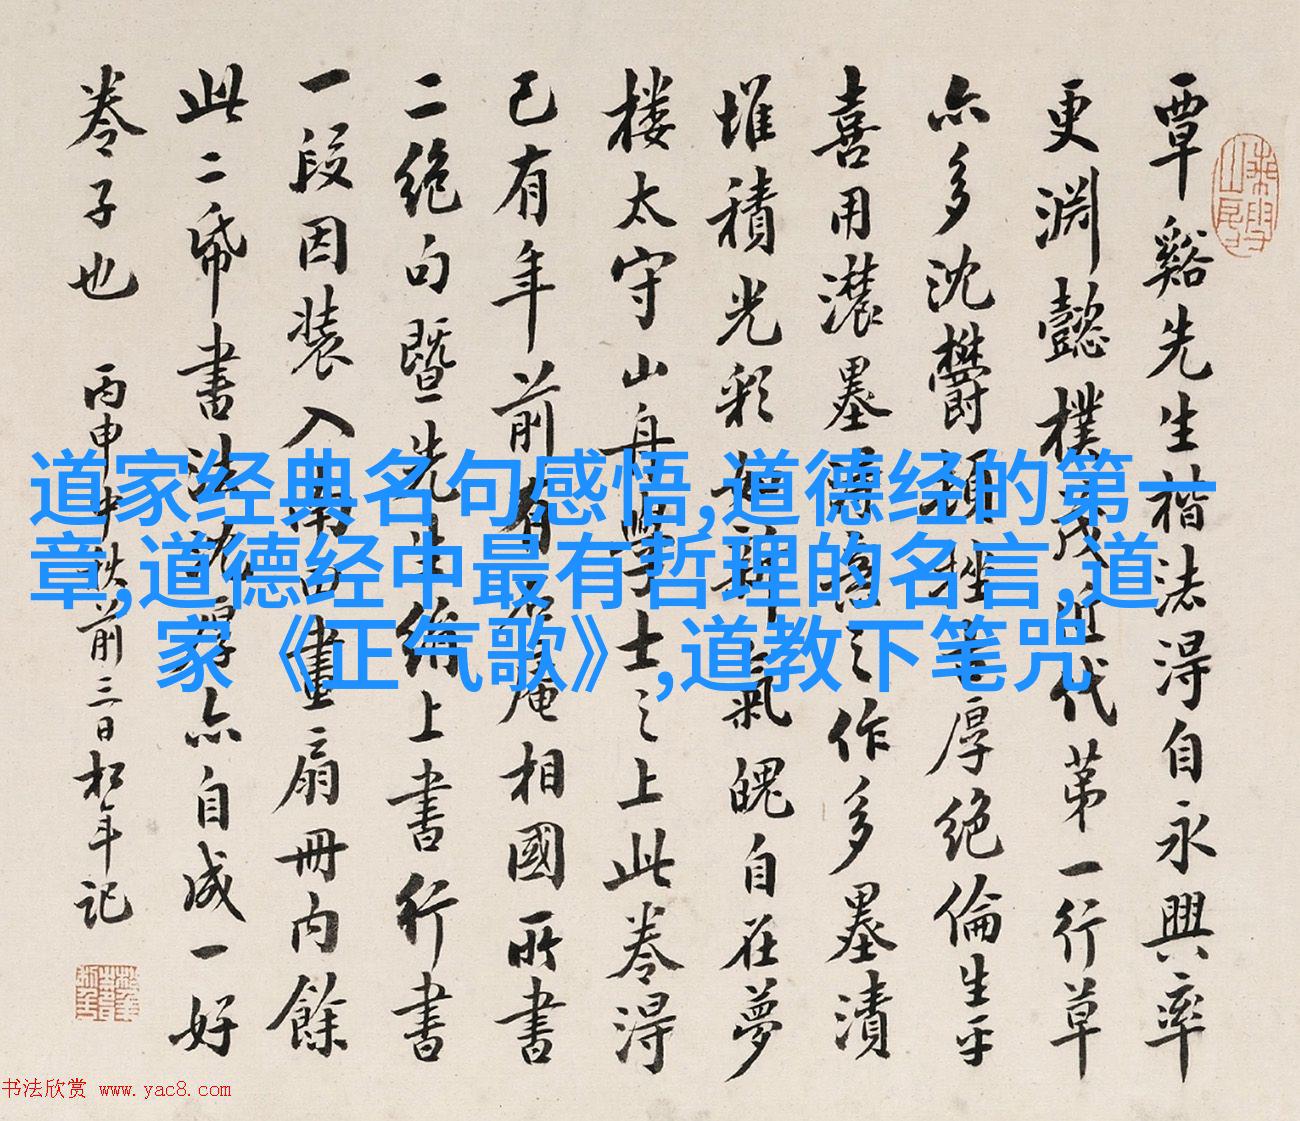 覃谿先生楷法淂自永興率
更渊懿樸茂近代苐一行草
亦多沈欝頓挫筆厚絶倫生平
喜用濃墨之作多墨漬
堆積光彩氣魄自在夢
楼太守山舟學士之上此卷淂
已有年前有石庵相國所書
二絶句暨先生上書行書
一段因装入南田畫扇冊内餘
此二帋書法沈厚亦自成一好
卷子也 丙申中秋前三日松年記
道家经典名句感悟,道德经的第一
章,道德经中最有哲理的名言,道
家《正气歌》,道教下笔咒
书法欣赏 www.yac8.com